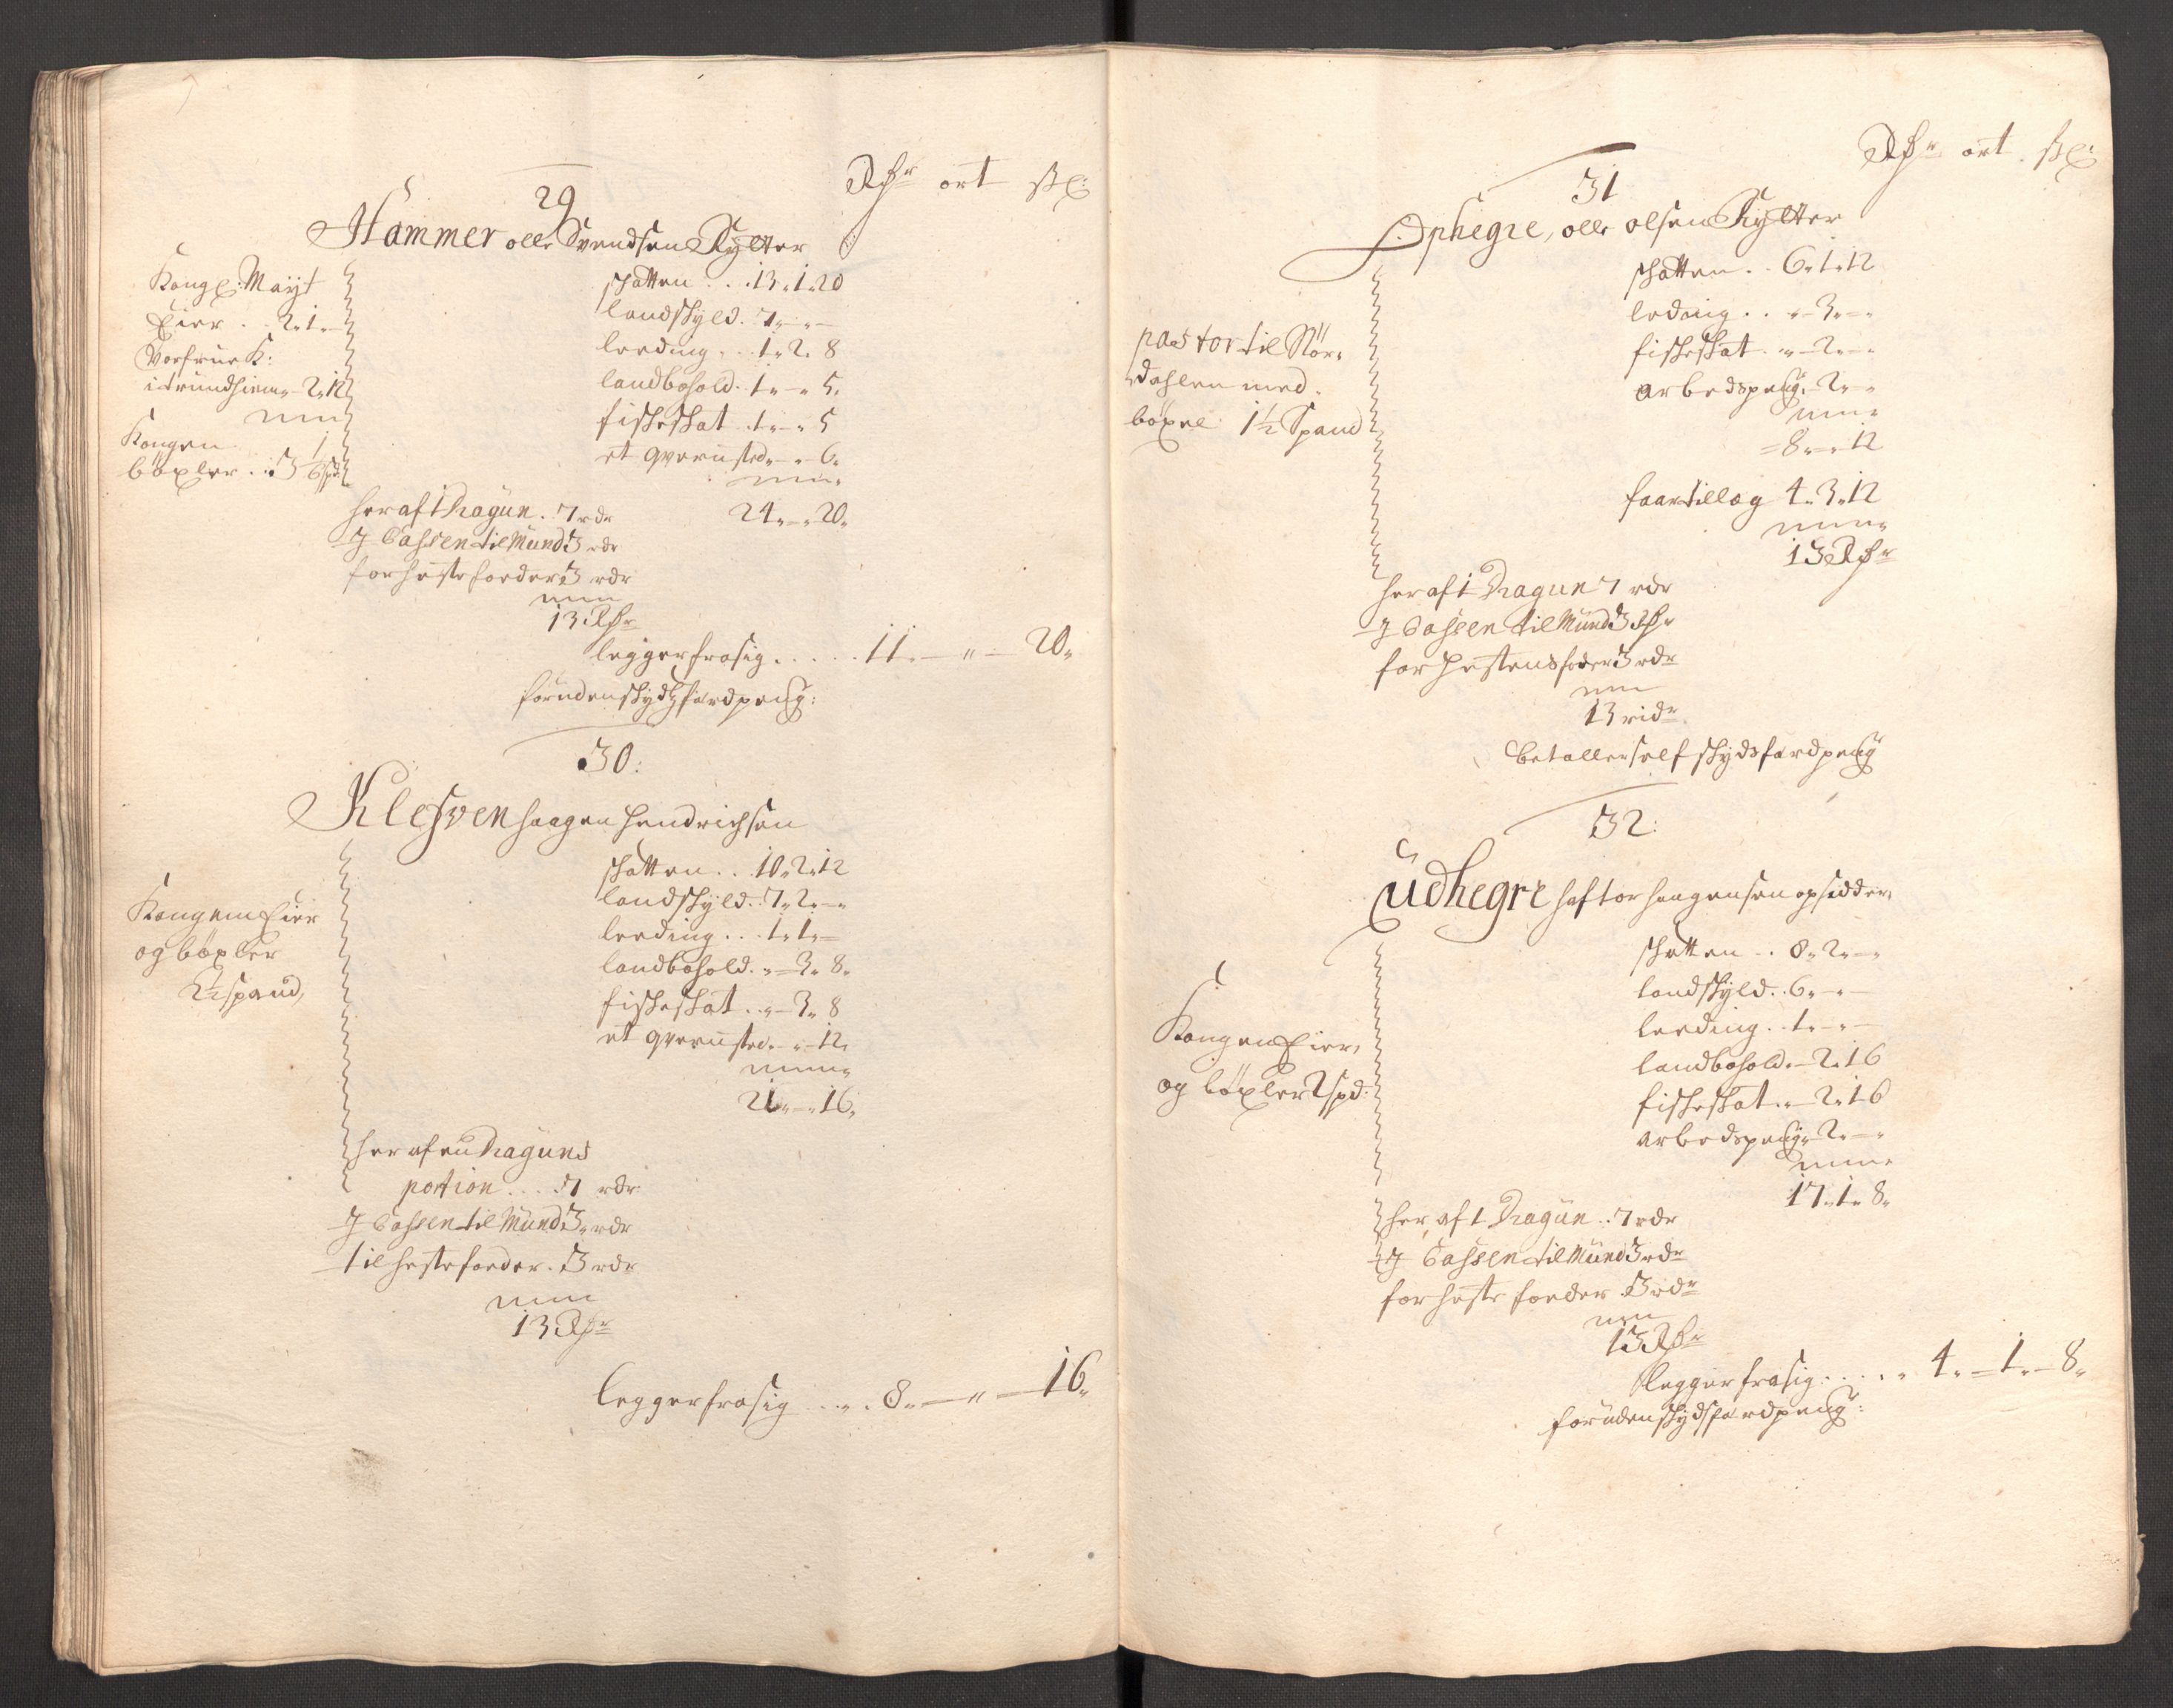 Rdr ort ß:
29
Hammer olle Svendsen Rytter
Kongl: Mayt
Eier . . 2 „ 1 „ –
Vorfrue K:
i trundhiem „ – 2 „ 12
Kongen
böxler . . 3 1/6 spd
schatten . . . 13 „ 1 „ 20
landschyld . 7 „ – „ –
leeding . . . 1 „ 2 „ 8
landbohold . 1 „ – „ 5 „
fischeschat . 1 „ – „ 5
et qvernsted „ – „ 6 „
24 „ – „ 20 „
her af 1 Dragun . 7 rdr
I Cassen til Mund: 3 rdr
for heste foeder 3 rdr
13 Rdr
legger fra sig . . . . . 11 . – „ – 20 „
foruden schydtzferdpeng:
30:
Klefven haagen hendrichsen
Kongen Eier
og böxler
2½ spand,
schatten . . 10 „ 2 „ 12
landschyld . . 7 „ 2 „ – „
leeding . . . 1 „ 1 „ –
landbohold . „ – 3 „ 8 „
fischeschat . . „ – 3 „ 8
et qvernsted . – „ – 12 „
21 „ – „ 16 „
her af en Draguns
portion . . . . 7 rdr
I Cassen til Mund: 3 „ rdr
til heste foeder . 3 rdr
13 Rdr
legger fra sig . . „ . 8 „ – „ – 16 „
Rdr ort . ß:
31
Ophegre, olle olsen Rytter
pastor til Stör„
dahlen med
böxel 1½ Spand
schatten . . 6 „ 1 „ 12
leding . . „ – 3 „ – „
fischeschat . „ – 2 „ – „
arbedspeng „ – 2 „ – „
= 8 „ – „ 12
faartillag 4 „ 3 „ 12
13 Rdr
her af 1 Dragun 7 rdr
I Cassen til Mund: 3 Rdr
for hestens foder 3 rdr
13 ridr
betaller self schydsferdpeng
32:
Udhegre haftor haagensen opsidder,
Kongen Eier,
og böxler 2 spd:
schatten . . 8 „ 2 „ – „
landschyld . . 6 „ – „ –
leeding . . 1 „ – „ –
landbohold . – 2 „ 16
fischeschat . „ – 2 „ 16
arbedspeng „ 2 „ – „
17 „ 1 „ 8 „
her af 1 Dragun . . 7 rdr
I Cassen til Mund 3 rdr
for heste foeder 3 rdr
13 Rdr
legger fra sig . . . . „ 4 „ – 1 „ – 8 „
foruden schydsferdpeng: